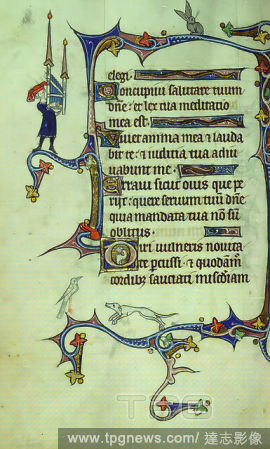 elegi.
Concupiui salutare tuum
dñe: et lex tua meditatio
mea est.
Uiuet anima mea & lauda
bit te: & iudicia tua adiu
uabunt me.
Erraui sicut ouis que pe
rijt: quere seruum tuũ dñe
quia mandata tua nõ sũ
oblitus.
Uri uulneris nouita
te percussi: & quodam̃
cordibʒ sauciati misc̃diam
TPG
www.tpgnews.com/達志影像